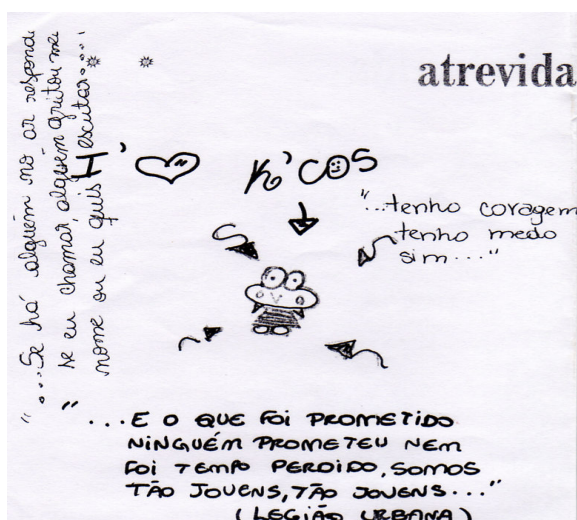 atrevida
"...Se há alguém no ar responda
se eu chamar, alguém gritou meu
nome ou eu quis escutar....
I' K'COS
"...tenho coragem
tenho medo
sim..."
"...E O QUE FOI PROMETIDO
NINGUÉM PROMETEU NEM
FOI TEMPO PERDIDO, SOMOS
TÃO JOVENS, TÃO JOVENS..."
(LEGIÃO URBANA)